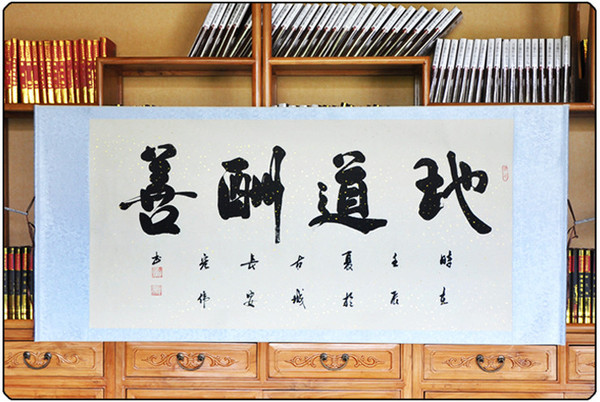 地道酬善
時在
壬辰
夏於
古城
長安
伟
书